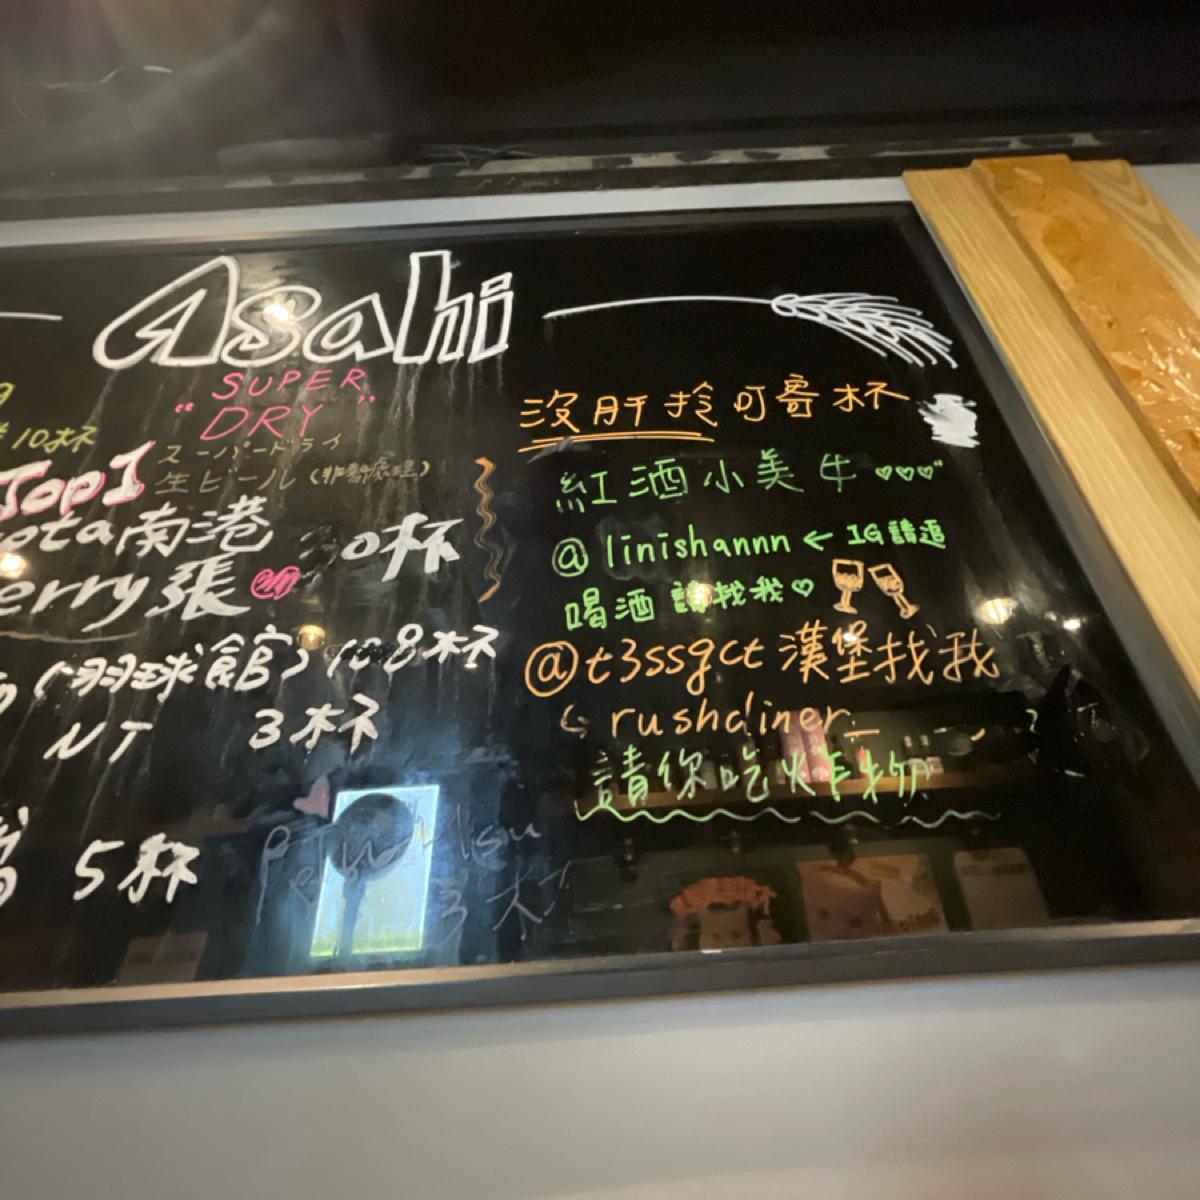 Asahi
SUPER
"DRY"
スーパードライ
生ビール (非熱處理)
10杯
Top1
ota南港
0杯
erry張
(羽球館) 108杯
NT 3杯
5杯
3杯
沒肝拎可寄杯
紅酒小美牛♡♡♡"
@linishannn ← IG請追
喝酒 請找我♡
@t3ssgct 漢堡找我
↳ rushdiner_
請你吃炸物